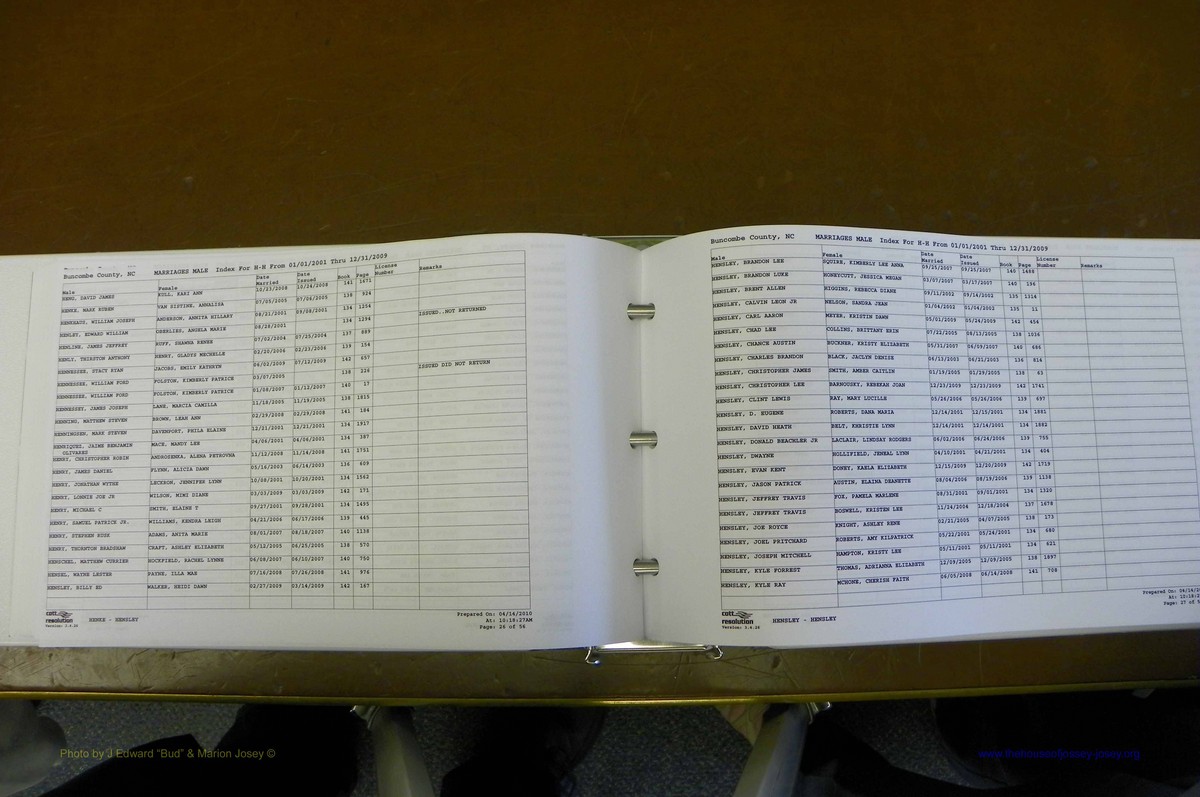 Buncombe County, NC MARRIAGES MALE Index For H-H From 01/01/2001 Thru 12/31/2009
Male Female Date Married Date Issued Book Page License Number Remarks
HENG, DAVID JAMES KULL, KARI ANN 10/23/2008 10/24/2008 141 1671
HENKE, MARK RUBEN VAN SISTINE, ANNALISA 07/05/2005 07/06/2005 138 924
HENKHAUS, WILLIAM JOSEPH ANDERSON, ANNITA HILLARY 08/21/2001 09/08/2001 134 1254
HENLEY, EDWARD WILLIAM OBERLIES, ANGELA MARIE 08/28/2001 134 1294 ISSUED..NOT RETURNED
HENLINE, JAMES JEFFREY HUFF, SHAWNA RENEE 07/02/2004 07/25/2004 137 889
HENLY, THIRSTON ANTHONY HENRY, GLADYS MECHELLE 02/20/2006 02/23/2006 139 154
HENNESSEE, STACY RYAN JACOBS, EMILY KATHRYN 06/02/2009 07/12/2009 142 657
HENNESSEE, WILLIAM FORD POLSTON, KIMBERLY PATRICE 03/07/2005 138 226 ISSUED DID NOT RETURN
HENNESSEE, WILLIAM FORD POLSTON, KIMBERLY PATRICE 01/08/2007 01/12/2007 140 17
HENNESSEY, JAMES JOSEPH LANE, MARCIA CAMILLA 11/18/2005 11/19/2005 138 1815
HENNING, MATTHEW STEVEN BROWN, LEAH ANN 02/29/2008 02/29/2008 141 184
HENNINGSEN, MARK STEVEN DAVENPORT, PHILA ELAINE 12/21/2001 12/21/2001 134 1917
HENRIQUEZ, JAIME BENJAMIN OLIVARES MACE, MANDY LEE 04/06/2001 04/06/2001 134 387
HENRY, CHRISTOPHER ROBIN ANDROSENKA, ALENA PETROVNA 11/12/2008 11/14/2008 141 1751
HENRY, JAMES DANIEL FLYNN, ALICIA DAWN 05/16/2003 06/14/2003 136 609
HENRY, JONATHAN WYTHE LECKRON, JENNIFER LYNN 10/08/2001 10/20/2001 134 1562
HENRY, LONNIE JOE JR WILSON, MIMI DIANE 03/03/2008 03/03/2009 142 171
HENRY, MICHAEL C SMITH, ELAINE T 09/27/2001 09/28/2001 134 1495
HENRY, SAMUEL PATRICK JR. WILLIAMS, KENDRA LEIGH 04/21/2006 06/17/2006 139 445
HENRY, STEPHEN RUSK ADAMS, ANITA MARIE 08/01/2007 08/18/2007 140 1138
HENRY, THORNTON BRADSHAW CRAFT, ASHLEY ELIZABETH 05/12/2005 06/25/2005 138 570
HENSCHEL, MATTHEW CURRIER HOCKFIELD, RACHEL LYNNE 06/08/2007 06/10/2007 140 750
HENSEL, WAYNE LESTER PAYNE, ILLA MAE 07/16/2008 07/26/2008 141 976
HENSLEY, BILLY ED WALKER, HEIDI DAWN 02/27/2009 03/14/2009 142 167
cott resolution
Version: 3.4.20
HENGE - HENSLEY
Prepared On: 04/14/2010
At: 10:18:27AM
Page: 26 of 56
Buncombe County, NC MARRIAGES MALE Index For H-H From 01/01/2001 Thru 12/31/2009
Male Female Date Married Date Issued Book Page License Number Remarks
HENSLEY, BRANDON LEE SQUIRE, KIMBERLY LEE ANNA 09/25/2007 09/25/2007 140 1488
HENSLEY, BRANDON LUKE HONEYCUTT, JESSICA MEGAN 03/07/2007 03/17/2007 140 196
HENSLEY, BRENT ALLEN HIGGINS, REBECCA DIANE 09/11/2002 09/14/2002 135 1314
HENSLEY, CALVIN LEON JR NELSON, SANDRA JEAN 01/04/2002 01/04/2002 135 11
HENSLEY, CARL AARON MEYER, KRISTIN DAWN 05/01/2009 05/24/2009 142 454
HENSLEY, CHAD LEE COLLINS, BRITTANY ERIN 07/22/2005 08/13/2005 138 1036
HENSLEY, CHANCE AUSTIN BUCKNER, KRISTY ELIZABETH 05/31/2007 06/09/2007 140 686
HENSLEY, CHARLES BRANDON BLACK, JACLYN DENISE 06/13/2003 06/21/2003 136 816
HENSLEY, CHRISTOPHER JAMES SMITH, AMBER CAITLIN 01/19/2005 01/29/2005 138 63
HENSLEY, CHRISTOPHER LEE BARNOUSKY, REBEKAH JOAN 12/23/2009 12/23/2009 142 1741
HENSLEY, CLINT LEWIS RAY, MARY LUCILLE 05/26/2006 05/26/2006 139 697
HENSLEY, D. EUGENE ROBERTS, DANA MARIA 12/14/2001 12/15/2001 134 1881
HENSLEY, DAVID HEATH BELT, KHRISTIE LYNN 12/14/2001 12/14/2001 134 1882
HENSLEY, DONALD BEACHLER JR LACLAIR, LINDSAY RODGERS 06/02/2006 06/24/2006 139 755
HENSLEY, DWAYNE HOLLIFIELD, JENEAL LYNN 04/10/2001 04/21/2001 134 404
HENSLEY, EVAN KENT DONEY, KAELA ELIZABETH 12/15/2009 12/20/2009 142 1718
HENSLEY, JASON PATRICK AUSTIN, ELAINA DEANETTE 08/04/2006 08/19/2006 139 1138
HENSLEY, JEFFREY TRAVIS FOX, PAMELA MARLENE 08/31/2001 09/01/2001 134 1320
HENSLEY, JEFFREY TRAVIS BOSWELL, KRISTEN LEE 11/24/2004 12/18/2004 137 1678
HENSLEY, JOE ROYCE KNIGHT, ASHLEY RENE 02/21/2005 04/07/2005 138 173
HENSLEY, JOEL PRITCHARD ROBERTS, AMY KILPATRICK 05/22/2001 05/26/2001 134 680
HENSLEY, JOSEPH MITCHELL HAMPTON, KRISTY LEE 05/11/2001 05/11/2001 134 621
HENSLEY, KYLE FORREST THOMAS, ADRIANNA ELIZABETH 12/09/2005 12/09/2005 138 1897
HENSLEY, KYLE RAY MCHONE, CHERISH FAITH 06/05/2008 06/14/2008 141 708
cott resolution
Version: 3.4.20
HENSLEY - HENSLEY
Prepared On:
At: 10:18:2
Page: 27 of 5
Photo by J Edward "Bud" & Marion Josey ©
www.thehouseofjossey-josey.org